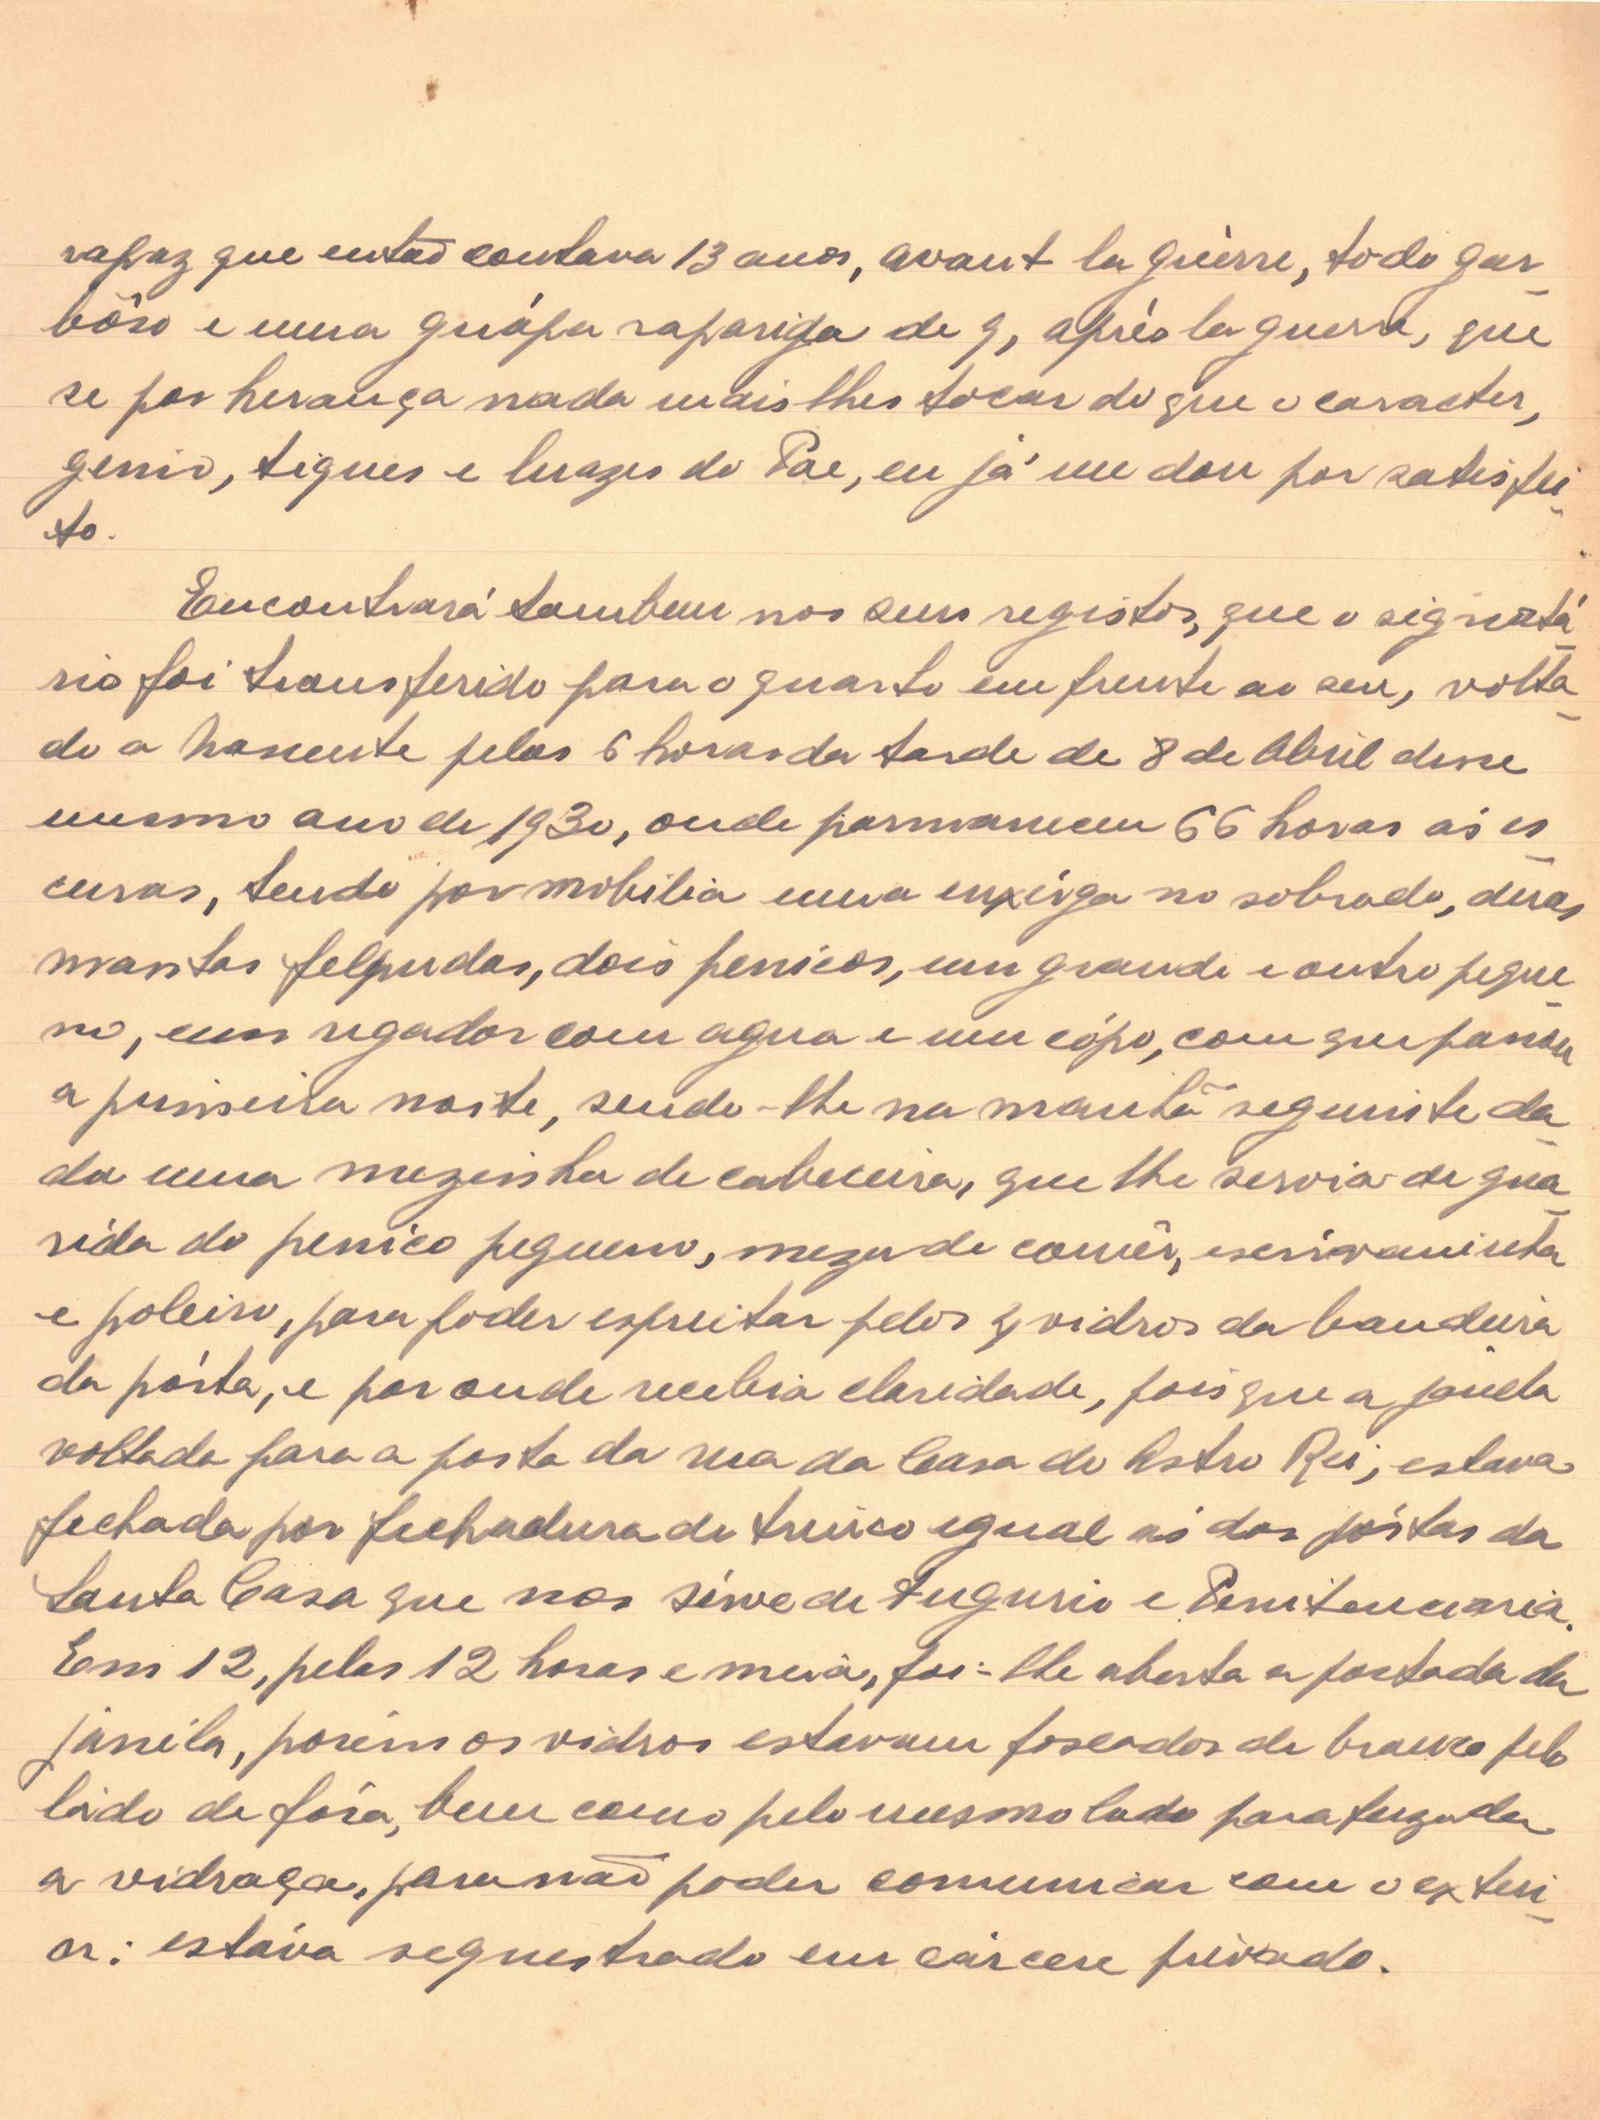 rapaz que então contava 13 anos, avant la guèrre, todo gar-
bôso e uma guápa rapariga de 9, aprés la guerre, que
se por herança nada mais lhes tocar do que o caracter,
genio, tiques e luazes do Pae, eu já me dou por satisfei-
to.
Encontrará tambem nos seus registos, que o signatá-
rio foi transferido para o quarto em frente ao seu, volta-
do a nascente pelas 6 horas da tarde de 8 de Abril desse
mesmo ano de 1930, onde permaneceu 66 horas ás es-
curas, tendo por mobilia uma enxêrga no sobrado, duas
mantas felpudas, dois penicos, um grande e outro peque-
no, um regador com agua e um cópo, com que passou
a primeira noite, sendo-lhe na manhã seguinte da-
da uma mezinha de cabeceira, que lhe servia de gua-
rida do penico pequeno, meza de comêr, escrivaninha
e poleiro, para poder espreitar pelos 4 vidros da bandeira
da pórta, e por onde recebia claridade, pois que a janéla
voltada para a porta da rua da Casa do Astro Rei, estava
fechada por fechadura de trinco egual ás das pórtas da
Santa Casa que nos sérve de tugurio e Penitenciaria.
Em 12, pelas 12 horas e meia, foi-lhe aberta a portada da
janéla, porém os vidros estavam foscados de branco pelo
lado de fóra, bem como pelo mesmo lado parafuzada
a vidraça, para não poder comunicar com o exteri-
or: estáva sequestrado em cárcere privado.